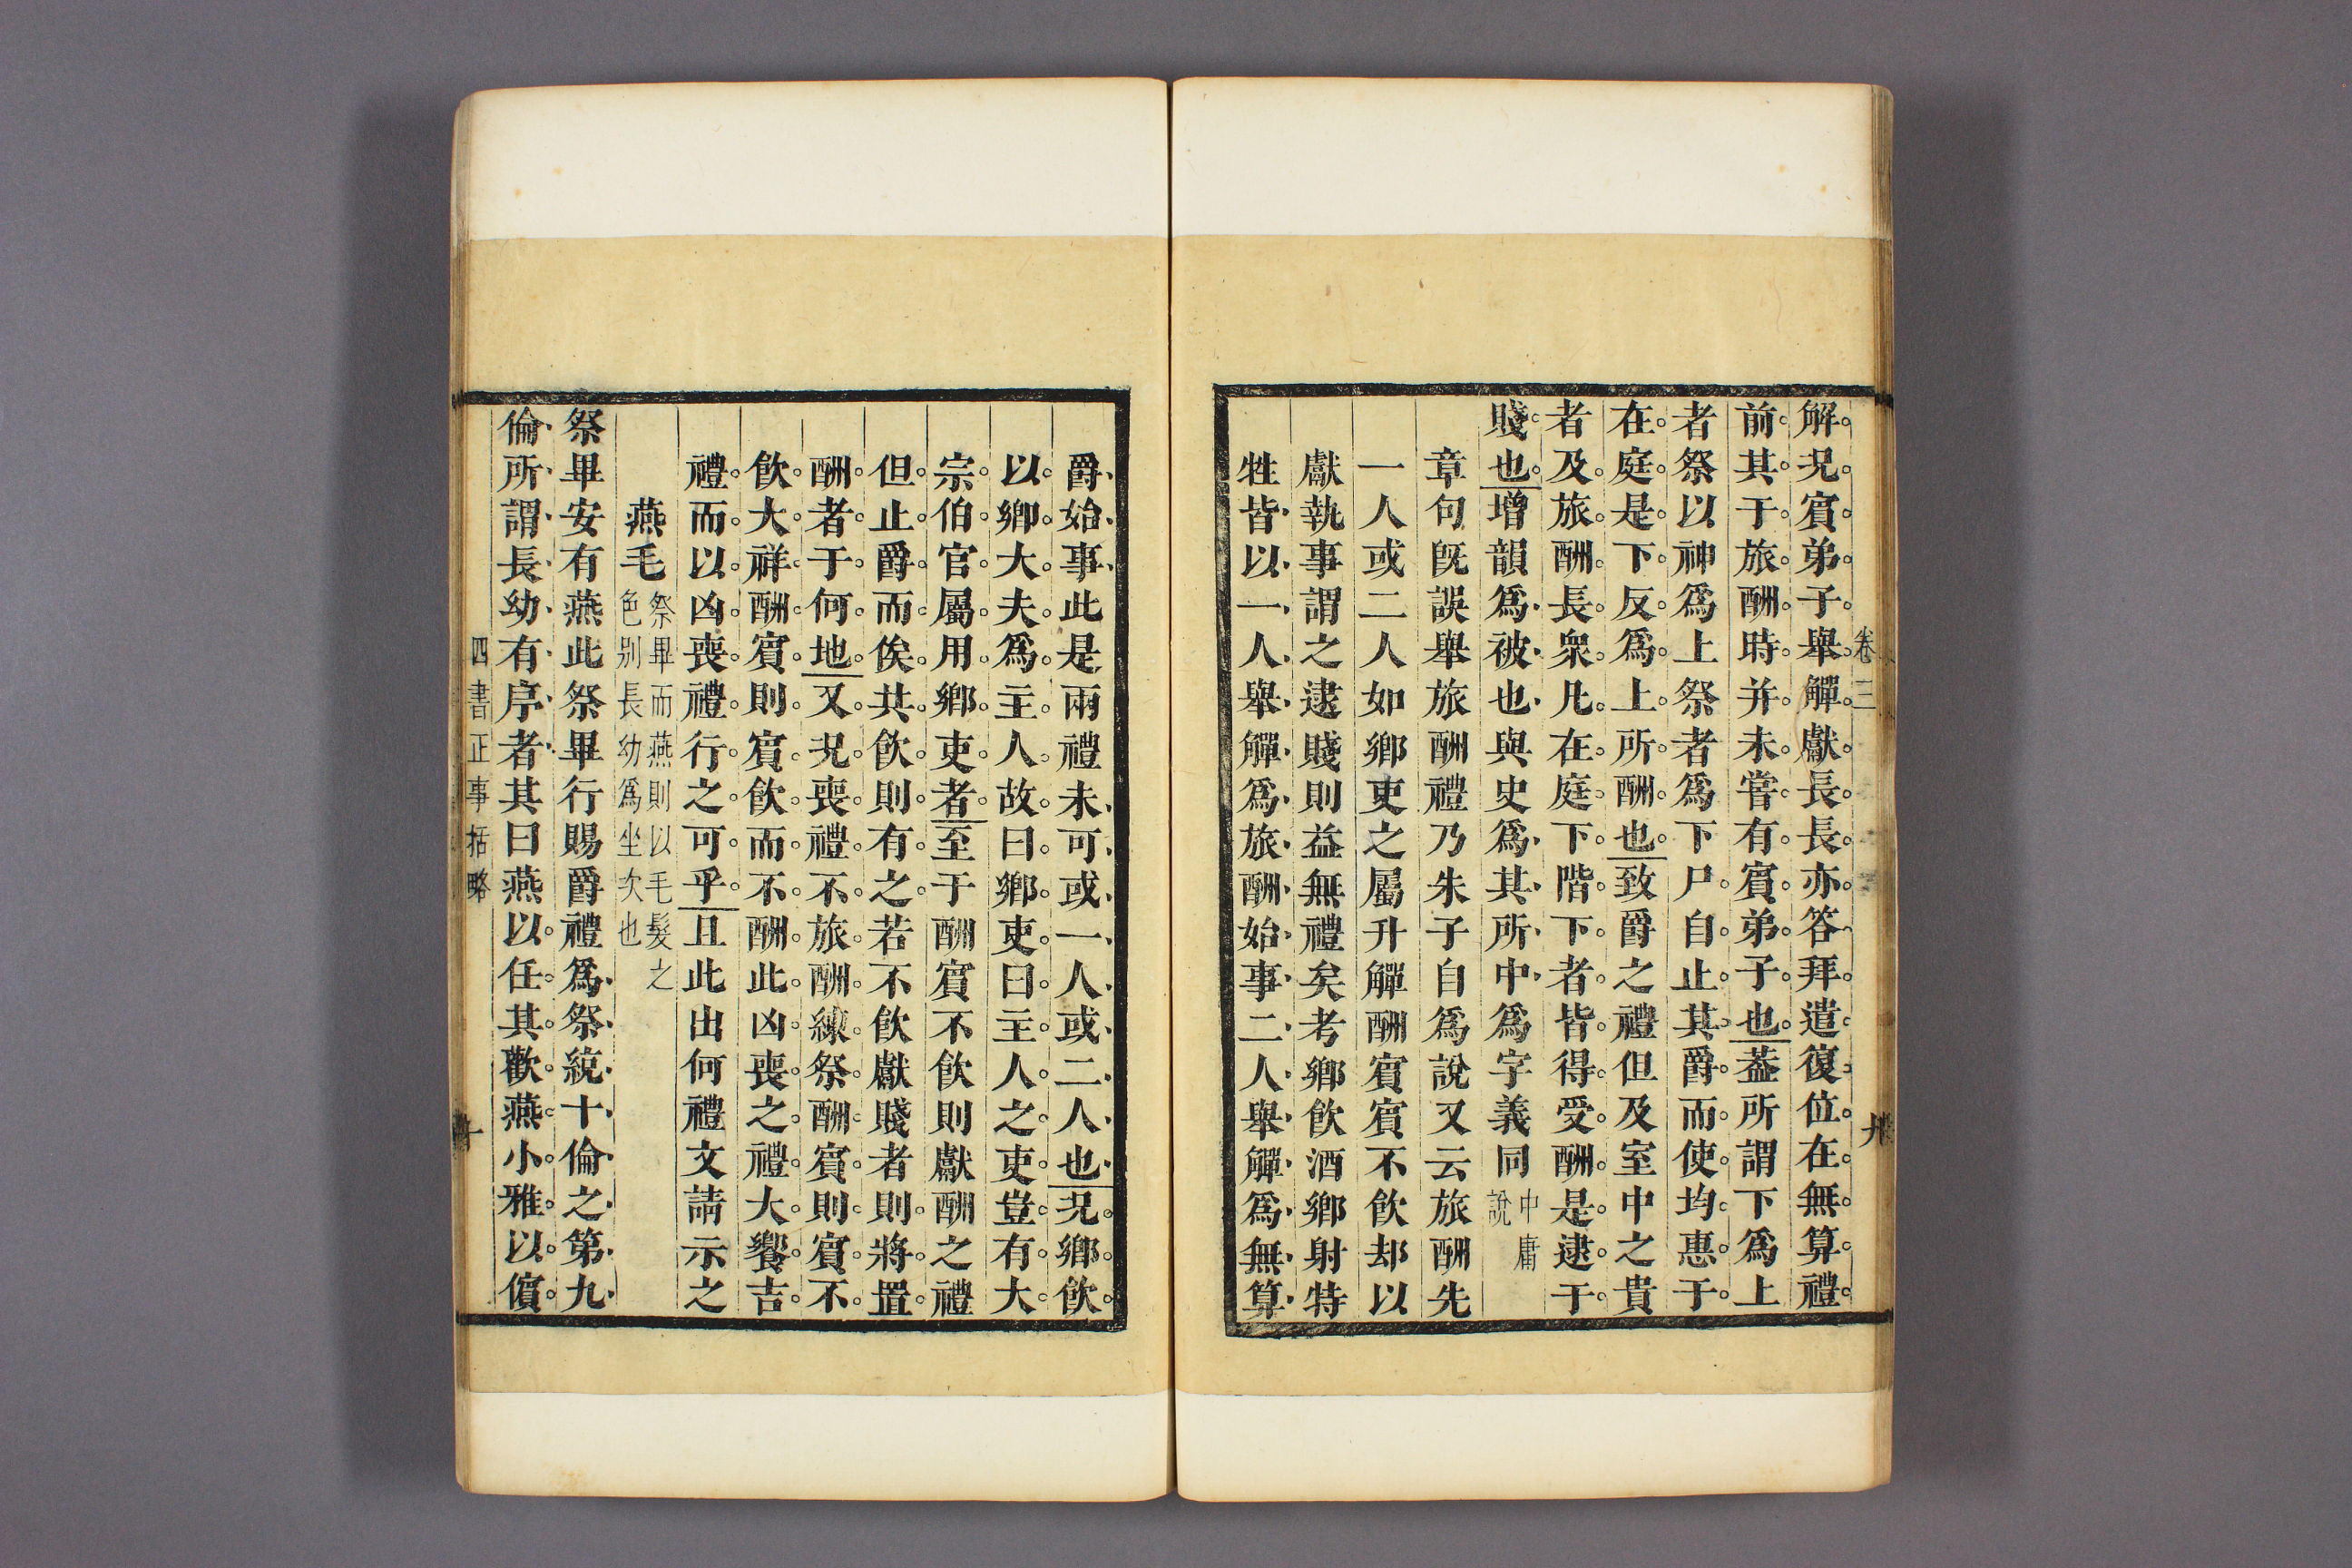 卷三
九
解况賓弟子舉觶獻長長亦答拜遣復位在無算禮
前其于旅酬時并未嘗有賓弟子也葢所謂下爲上
者祭以神爲上祭者爲下尸自止其爵而使均惠于
在庭是下反爲上所酬也致爵之禮但及室中之貴
者及旅酬長衆凡在庭下階下者皆得受酬是逮于
賤也增韻爲被也與史爲其所中爲字義同中庸
說
章句旣誤舉旅酬禮乃朱子自爲說又云旅酬先
一人或二人如鄉吏之屬升觶酬賓賓不飮却以
獻執事謂之逮賤則益無禮矣考鄉飮酒鄉射特
牲皆以一人舉觶爲旅酬始事二人舉觶爲無算
爵始事此是兩禮未可或一人或二人也况鄉飮
以鄉大夫爲主人故曰鄉吏曰主人之吏豈有大
宗伯官屬用鄉吏者至于酬賓不飮則獻酬之禮
但止爵而俟共飮則有之若不飮獻賤者則將置
酬者于何地又况喪禮不旅酬練祭酬賓則賓不
飮大祥酬賓則賓飮而不酬此凶喪之禮大饗吉
禮而以凶喪禮行之可乎且此出何禮文請示之
燕毛祭畢而燕則以毛髮之
色别長幼爲坐次也
祭畢安有燕此祭畢行賜爵禮爲祭統十倫之第九
倫所謂長幼有序者其曰燕以任其歡燕小雅以儐
四書正事括略
十